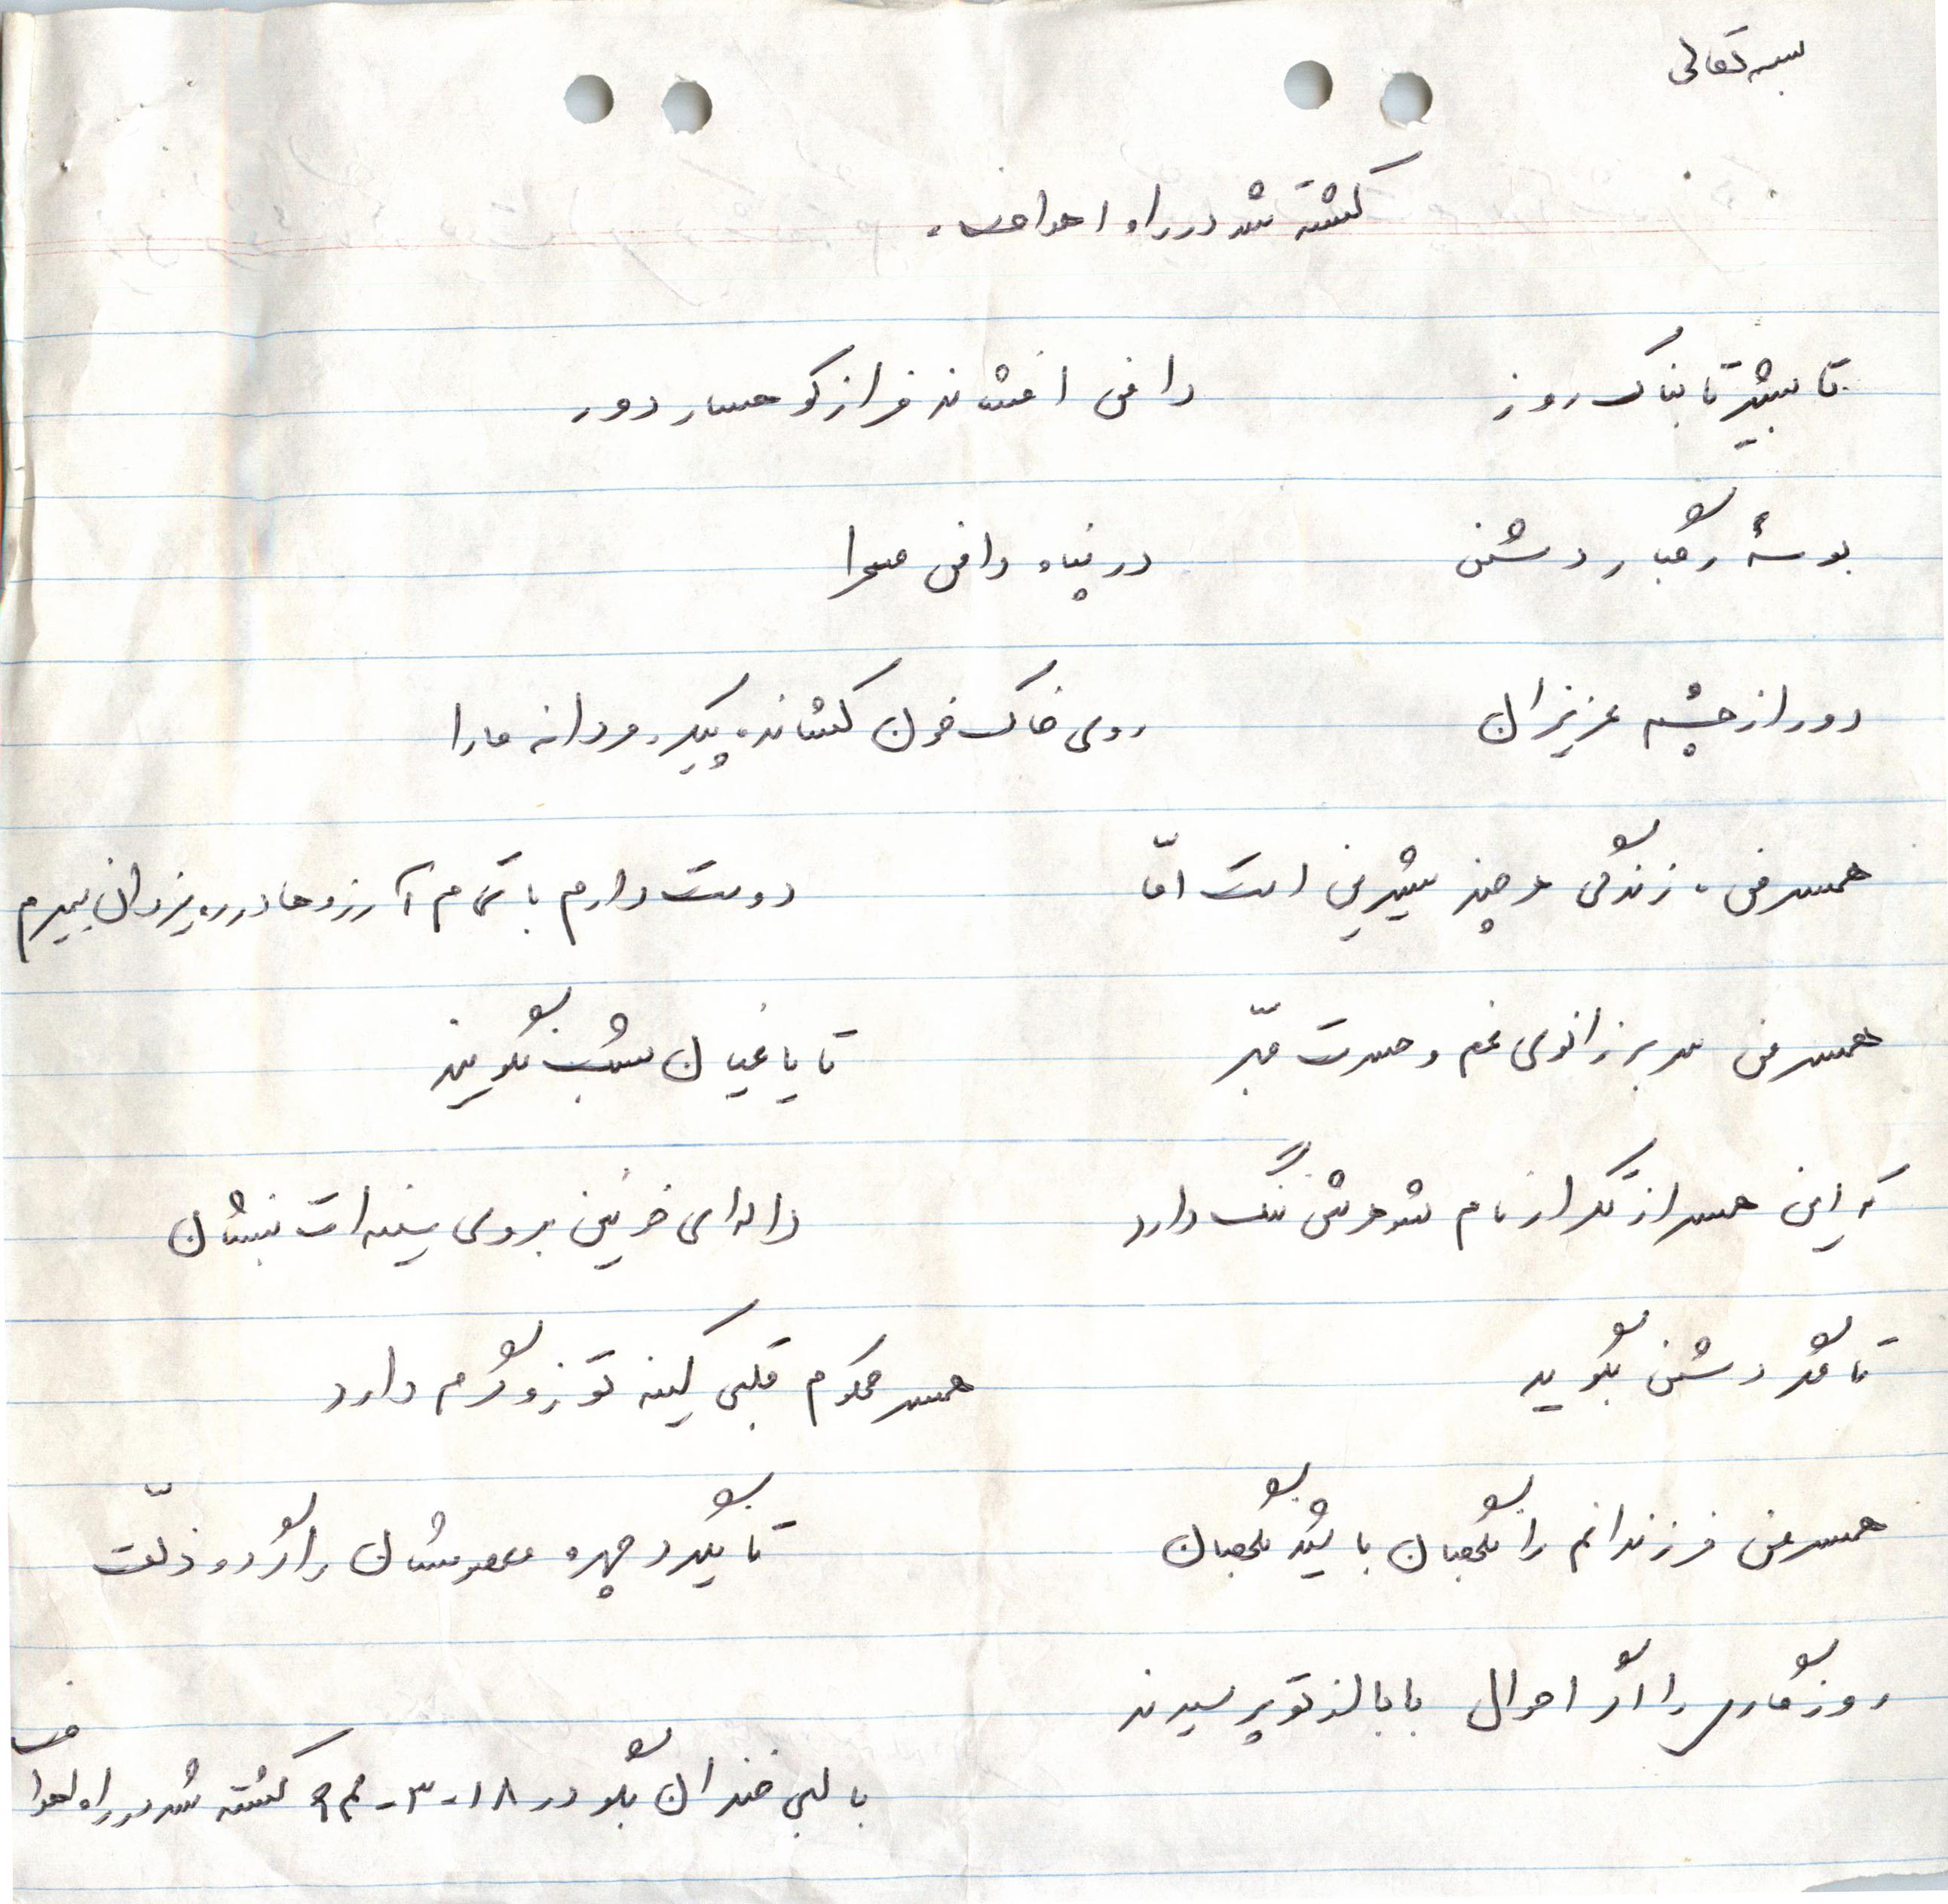 بسمه تعالی
کشته شد در راه اهدافش.
تا بیشتر تابناک روز دامن افشاند فراز کوهسار دور
بوسهٔ رگبار دشمن در پناه دامن صحرا
دور از چشم عزیزان روی خاک خون کشانده پیکر مردانه ما را
همسر من، زندگی هر چند شیرین است امّا دوست دارم با تمام آرزوها در ره یزدان بمیرم
همسر من سر بر زانوی غم و حسرت مبّر تا یاغیان شب نگویند
که این همسر از تکرار نام شوهرش ننگ دارد لاله‌ای خونین بروی سینه‌ات بنشان
تا مگر دشمن بگوید همسر محکوم قلبی کینه توز و گرم دارد
همسر من فرزندانم را نگهبان باش نگهبان تا نگیرد چهره معصومشان را گرد و ذلّت
روزگاری را اگر احوال بابا از تو پرسیدند
با لبی خندان بگو در ۱۸-۳- کشته شد در راه اهدافش